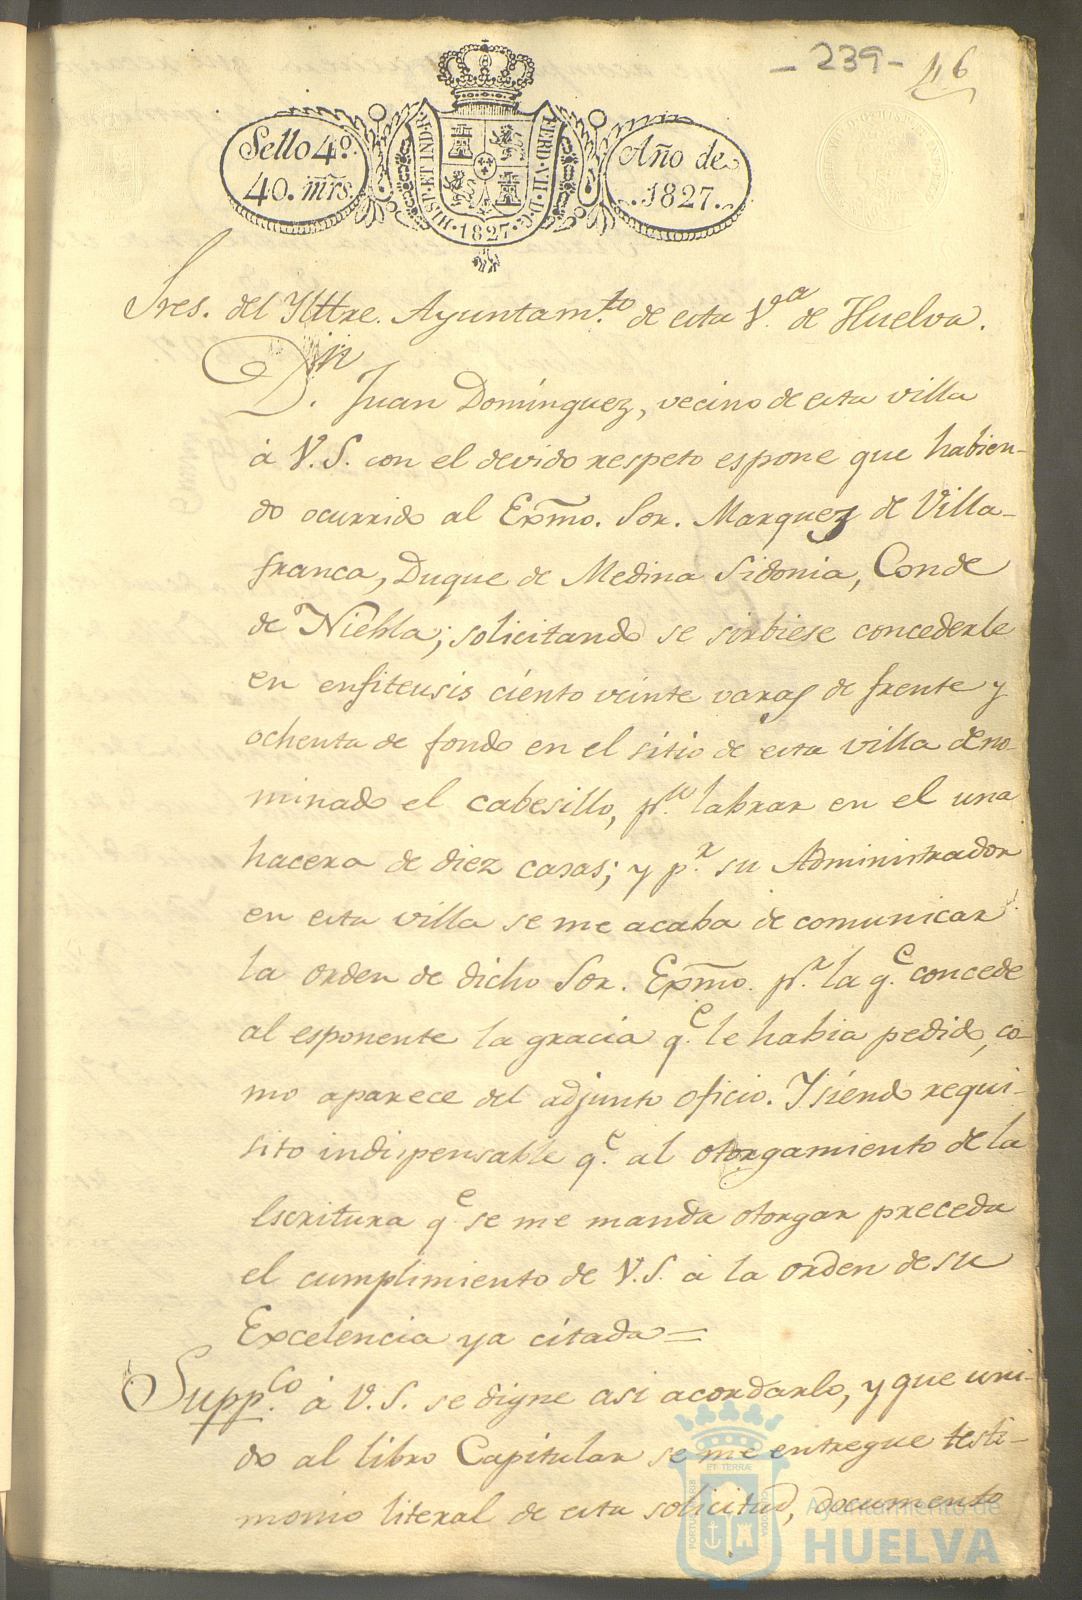 - 239 - 46
Sello 4º.
40. mrs.
HISP. ET IND. R. FERD. VII. D. G.
1827.
Año de
1827.
Sres. del Ylttre. Ayuntam.to de esta V.a de Huelva.
D.n Juan Domínguez, vecino de esta villa
à V.S. con el devido respeto espone que habien-
do ocurrido al Exmo. Sor. Marquez de Villa-
franca, Duque de Medina Sidonia, Conde
de Niebla; solicitando se sirbiese concederle
en enfiteusis ciento veinte varas de frente y
ochenta de fondo en el sitio de esta villa deno-
minado el cabesillo, p.a labrar en el una
hacera de diez casas; y p.r su Administrador
en esta villa se me acaba de comunicar
la orden de dicho Sor. Exmo. p.r la q.e concede
al esponente la gracia q.e le habia pedido, co-
mo aparece del adjunto oficio. Y siendo requi-
sito indispensable q.e al otorgamiento de la
Escritura q.e se me manda otorgar preceda
el cumplimiento de V.S. à la orden de su
Excelencia ya citada =
Supp.co à V.S. se digne asi acordarlo, y que uni-
do al libro Capitular se me entregue testi-
monio literal de esta solicitud, documento
Ayuntamiento de
HUELVA
PORTUS MARIS ET TERRÆ CUSTODIA